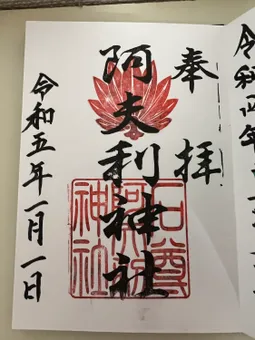 奉拝
阿夫利神社
石尊
阿夫利
神社
令和五年一月一日